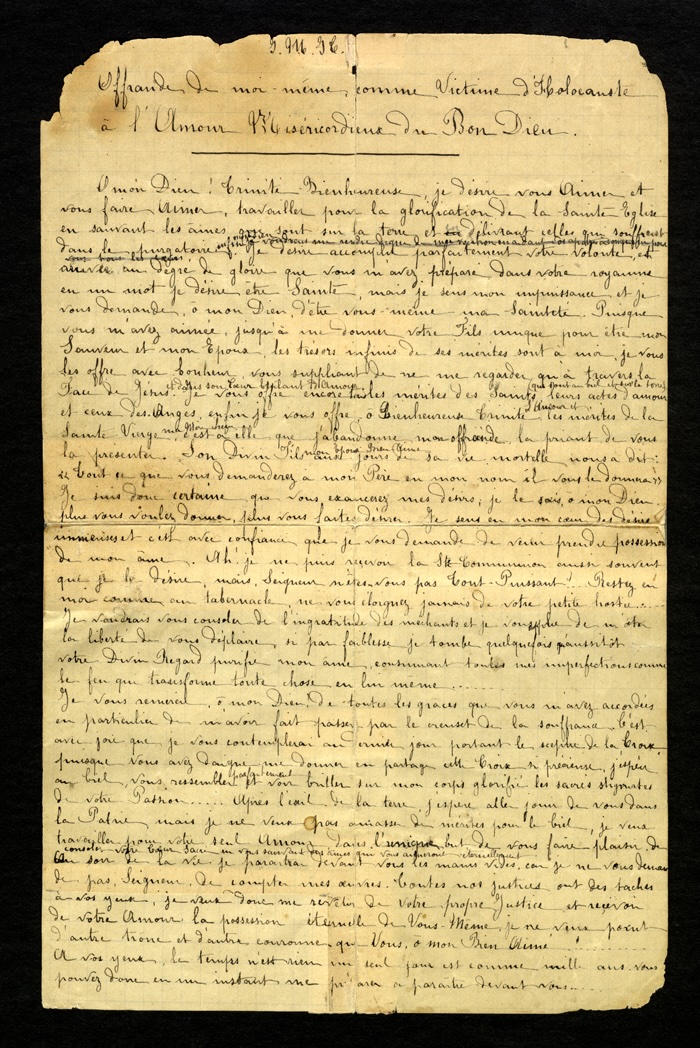 J. M. J. T.
Offrande de moi-même, comme Victime d'Holocauste
à l'Amour Miséricordieux du Bon Dieu.
O mon Dieu ! Trinité Bienheureuse, je désire vous Aimer et
vous faire Aimer, travailler pour la glorification de la Sainte Eglise
en sauvant les âmes qui sont sur la terre et en délivrant celles qui souffrent
dans le purgatoire. Je désire accomplir parfaitement votre volonté, et
arriver au degré de gloire que vous m'avez préparé dans votre royaume
en un mot je désire être Sainte, mais je sens mon impuissance et je
vous demande, ô mon Dieu, d'être vous-même ma Sainteté. Puisque
vous m'avez aimée, jusqu'à me donner votre Fils unique pour être mon
Sauveur et mon Epoux, les trésors infinis de ses mérites sont à moi, je vous
les offre avec bonheur, vous suppliant de ne me regarder qu'à travers la
Face de Jésus et dans son Coeur brûlant d'Amour
Je vous offre encore tous les mérites des Saints (qui sont au Ciel et sur la terre) leurs actes d'amour
et ceux des Anges, enfin je vous offre, ô Bienheureuse Trinité l'Amour et les mérites de la
Sainte Vierge ma Mère chérie c'est à elle que j'abandonne mon offrande la priant de vous
la présenter. Son Divin Fils mon Epoux Bien-Aimé aux jours de sa vie mortelle nous a dit :
« Tout ce que vous demanderez à mon Père en mon nom il vous le donnera »
Je suis donc certaine que vous exaucerez mes désirs ; je le sais, ô mon Dieu,
plus vous voulez donner, plus vous faites désirer. Je sens en mon cœur des désirs
immenses et c'est avec confiance que je vous demande de venir prendre possession
de mon âme. Ah ! je ne puis recevoir la Ste Communion aussi souvent
que je le désire, mais, Seigneur n'êtes-vous pas Tout-Puissant ?... Restez en
moi comme au tabernacle, ne vous éloignez jamais de votre petite hostie....
Je voudrais vous consoler de l'ingratitude des méchants et je vous supplie de m'ôter
la liberté de vous déplaire, si par faiblesse je tombe quelquefois qu'aussitôt
votre Divin Regard purifie mon âme, consumant toutes mes imperfections comme
le feu qui transforme toute chose en lui-même.....
Je vous remercie, ô mon Dieu, de toutes les grâces que vous m'avez accordées
en particulier de m'avoir fait passer par le creuset de la souffrance. C'est
avec joie que je vous contemplerai au dernier jour portant le sceptre de la Croix,
puisque vous avez daigné me donner en partage cette Croix si précieuse, j'espère
au Ciel, vous ressembler parfaitement et voir briller sur mon corps glorifié les sacrés stigmates
de votre Passion..... Après l'exil de la terre, j'espère aller jouir de vous dans
la Patrie mais je ne veux pas amasser de mérites pour le Ciel, je veux
travailler pour votre seul Amour dans l'unique but de vous faire plaisir de
consoler votre Coeur Sacré en vous sauvant des âmes qui vous aimeront éternellement
Au soir de la vie je paraîtrai devant vous les mains vides, car je ne vous demande
pas, Seigneur, de compter mes œuvres. Toutes nos justices ont des taches
à vos yeux, je veux donc me revêtir de votre propre Justice et recevoir
de votre Amour la possession éternelle de Vous-Même, je ne veux point
d'autre trône et d'autre couronne que Vous, ô mon Bien Aimé !....
A vos yeux, le temps n'est rien un seul jour est comme mille ans vous
pouvez donc en un instant me préparer à paraître devant vous.....